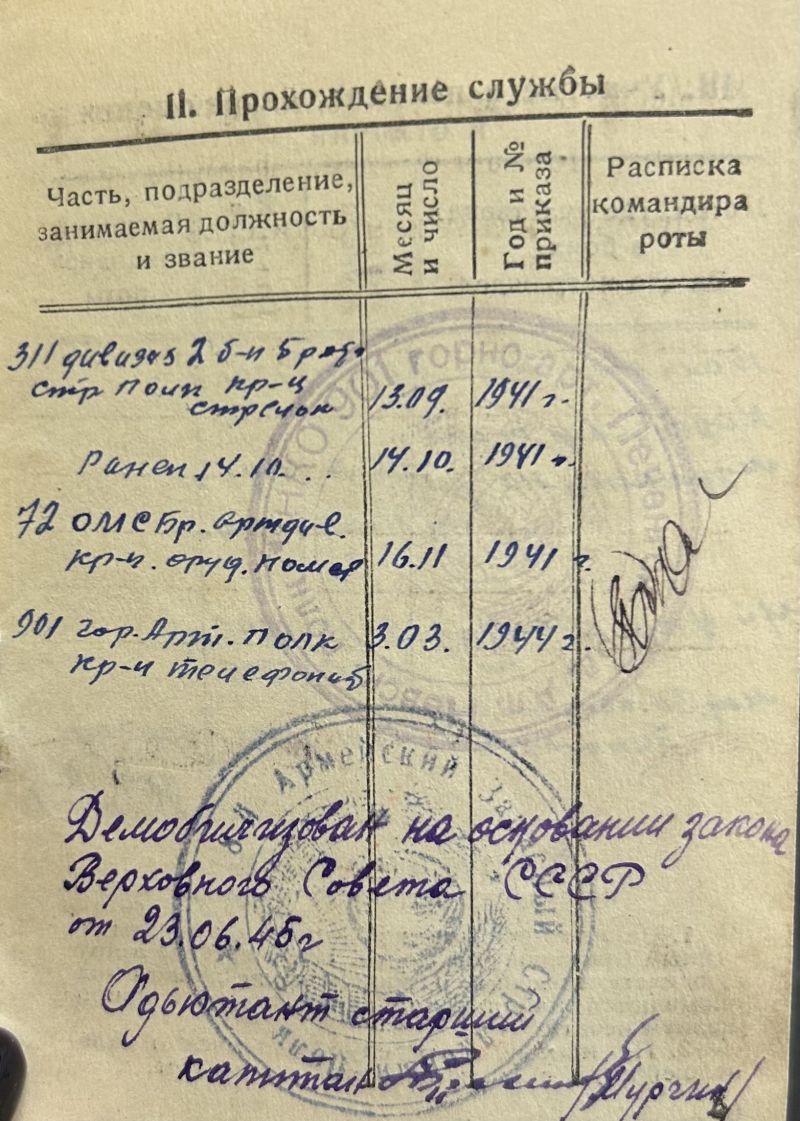 II. Прохождение службы
Часть, подразделение,
занимаемая должность
и звание
Месяц
и число
Год и №
приказа
Расписка
командира
роты
311 2 б-н
стр полк кр-ц
стрелок 13.09. 1941 г.
Ранен 14.10. . . 14.10. 1941 г.
72 ОМСбр. артдив.
кр-ц. оруд. номер 16.11 1941 г.
901 гор. Арт. полк 3.03. 1944 г.
кр-ц телефонист
Армейский
Демобилизован на основании закона
Верховного Совета СССР
от 23.06.45г
Адьютант старший
капитан